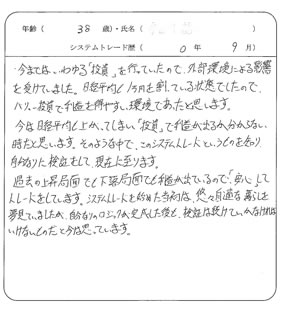 年齢 ( 38 歳)・氏名 (
システムトレード歴 ( 0 年 9 月)
今までは、いわゆる「投資」を行っていたので、外部環境による影響
を受けました。日経平均も1万円を割している状態でしたので、
ハッハ投資で利益を得やすい環境であったと思います。
今は日経平均も上がってしまい「投資」で利益が出るか分からない
時だと思います。そのような中で、このシステムトレードというものを知り
自分なりに検証をして、現在に至ります。
過去の上昇局面でも下落局面でも利益が出ているので「安心」して
トレードをしています。システムトレードを始めた当初は、悠々自適な暮らしを
夢見ていましたが、自分なりのロジックが完成した後も、検証は続けていかなければ
いけないものだと今は思っています。